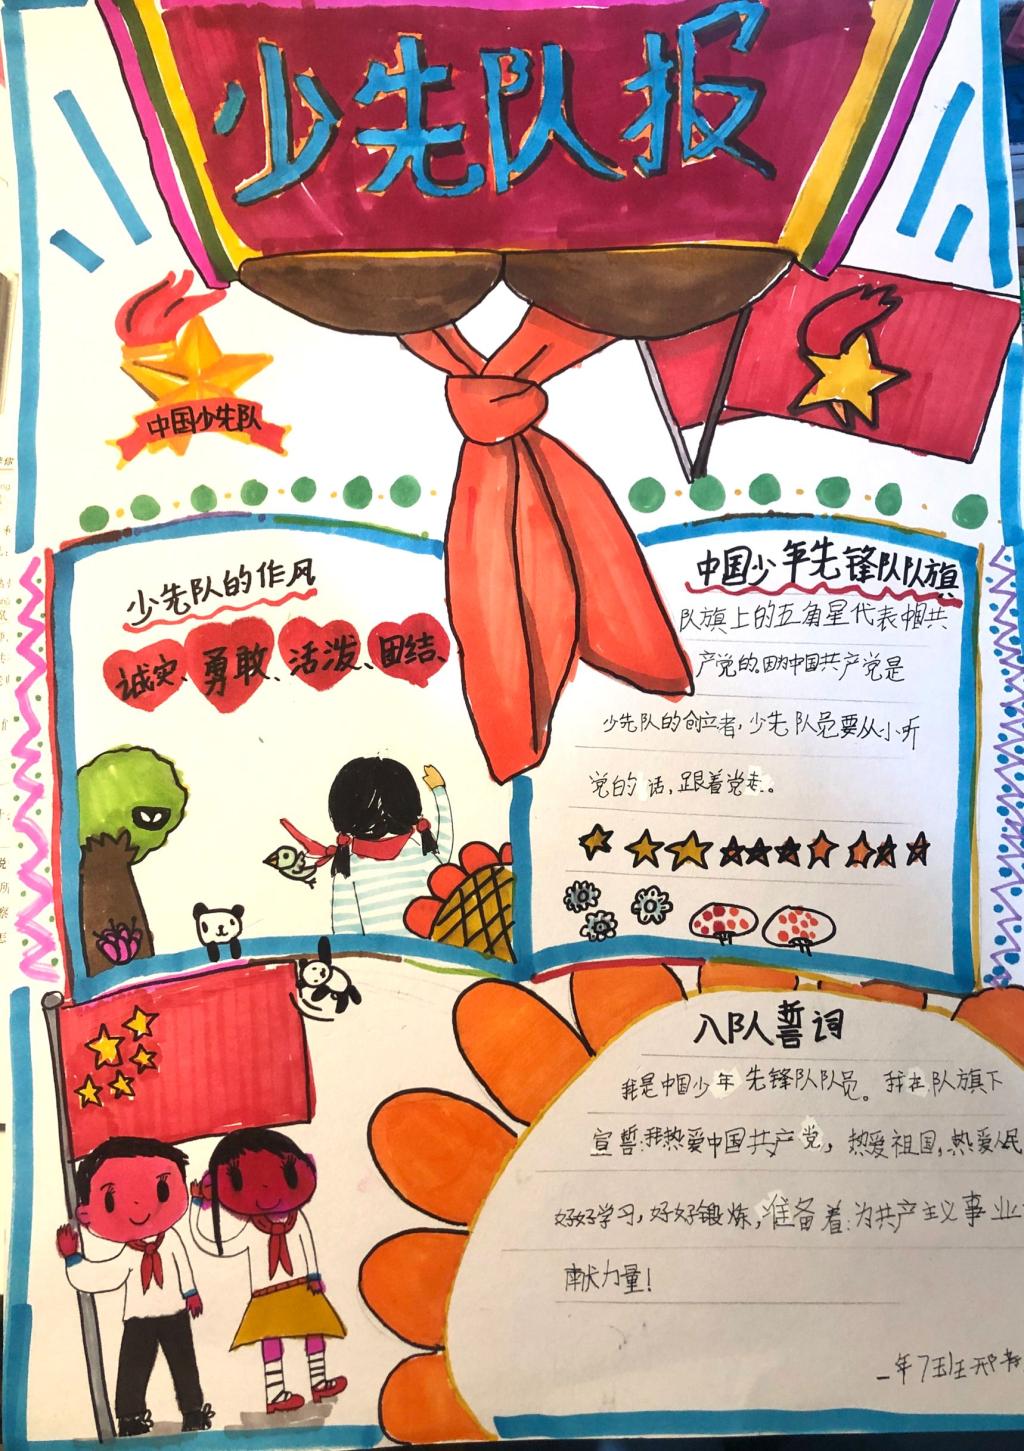 少先队报
中国少先队
少先队的作风
诚实、勇敢、活泼、团结、
中国少年先锋队队旗
队旗上的五角星代表中国共
产党的。因为中国共产党是
少先队的创立者，少先队员要从小听
党的话，跟着党走。
入队誓词
我是中国少年先锋队队员。我在队旗下
宣誓：我热爱中国共产党，热爱祖国，热爱人民
好好学习，好好锻炼，准备着：为共产主义事业
献力量！
一年7班